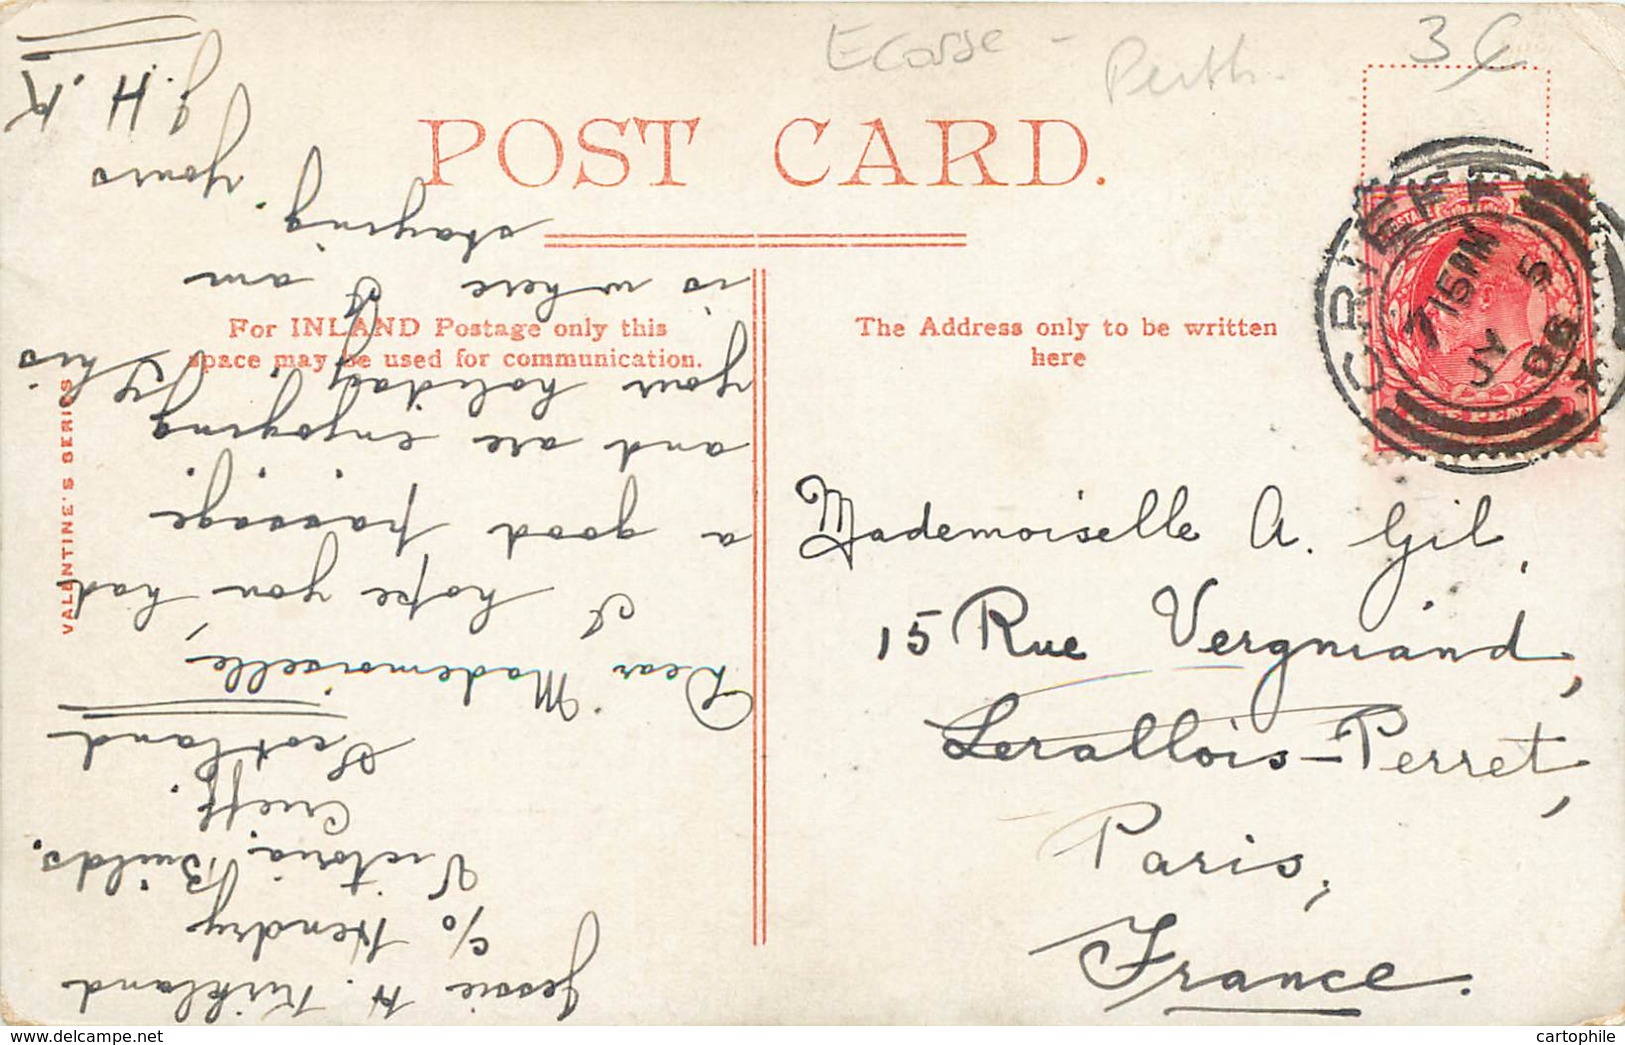 Ecosse - Perth.
3 €
POST CARD.
For INLAND Postage only this
space may be used for communication.
The Address only to be written
here
VALENTINE'S SERIES
CRIEFF
7 15 PM
JY 5
06
Mademoiselle A. Gil,
15 Rue Vergniand,
Lerallois-Perret,
Paris,
France.
Jessie H. Kirkland
c/o Hendry
Victoria Builds.
Crieff.
Scotland
Dear Mademoiselle,
I hope you had
a good passage
and are enjoying
your holiday. This
is where I am
staying.
Yours
J. H. K
cartophile